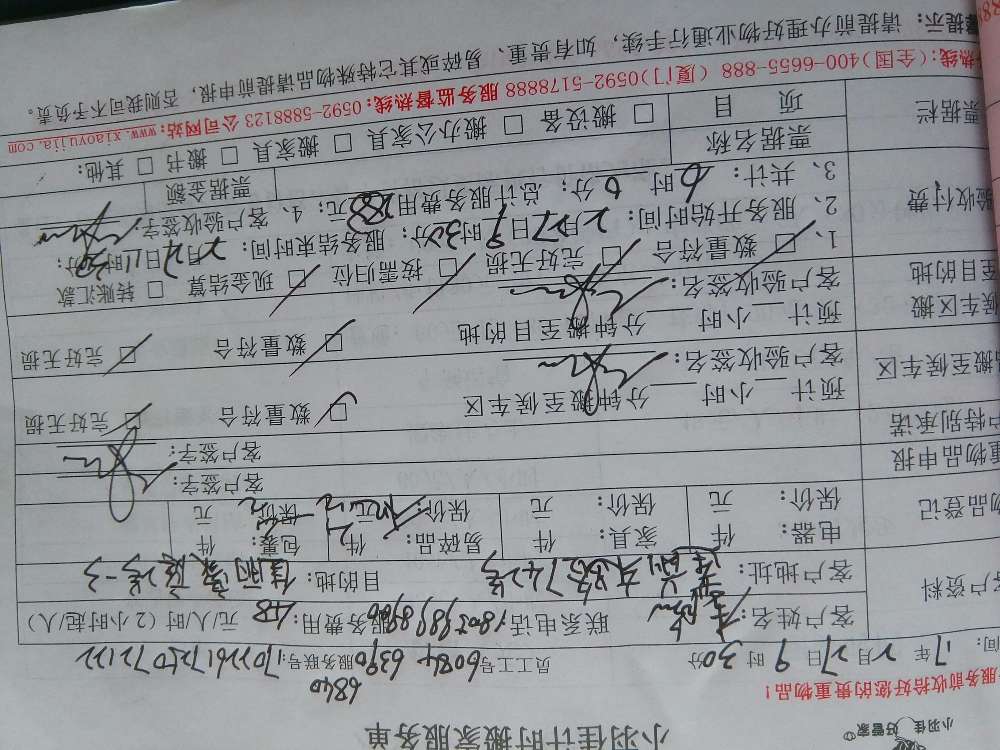 小羽佳 好管家
小羽佳计时搬家服务单
服务前收拾好您的贵重物品！
间： 17年 2月27日 9时 30分 员工工号 6084 6390 6840 服务联号：
客户资料 客户姓名： 联系电话： 服务费用：48 元/人/时（2小时起/人）
客户地址： 目的地：佳丽家庭
物品登记 电器： 件 家具： 件 易碎品： 件 包裹： 件
保价： 元 保价： 元 保价： 元 保价： 元
重物品申报 客户签字：
户特别承诺 客户签字：
搬至候车区 预计 小时 分钟搬至候车区 □ 数量符合 □ 完好无损
客户验收签名：
候车区搬至目的地 预计 小时 分钟搬至目的地 □ 数量符合 □ 完好无损
客户验收签名：
验收付费 1、□ 数量符合 □ 完好无损 □ 按需归位 □ 现金结算 □ 转账汇款
2、服务开始时间：2月27日9时30分；服务结束时间：2月27日11时30分；
3、共计： 时 分；总计服务费用288元；4、客户验收签字：
票据栏 票据名称 票据金额
项目 □ 搬设备 □ 搬办公家具 □ 搬家具 □ 搬书 □ 其他：
热线：(全国)400-6655-888 (厦门)0592-5178888 服务监督热线：0592-5888123 公司网站：www.xiaoyujia.com
提示：请提前办理好物业通行手续，如有贵重、易碎或其它特殊物品请提前申报，否则我司不予负责。